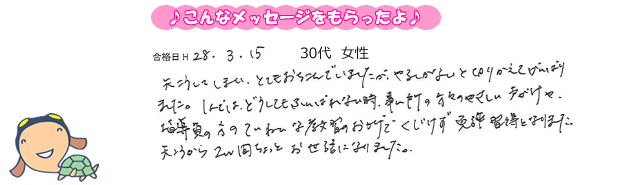 ♪こんなメッセージをもらったよ♪
合格日 H 28. 3. 15 30代 女性
失こうしてしまい、とてもおちこんでいましたが、やるしかないと切りかえてがんばり
ました。1人ではどうしてもがんばれない時、事ム所の方々のやさしい声がけや、
指導員の方のていねいな教習のおかげでくじけず免許習得となりました。
失こうから2W間ちょっとお世話になりました。